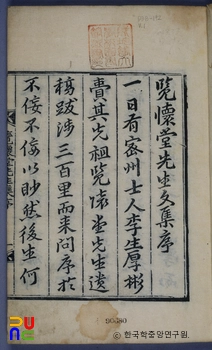 覽懷堂先生文集序
一日有密州士人李生厚彬
賷其先祖覽懷堂先生遺
稿跋涉三百里而來問序於
不佞不佞以眇然後生何
PUNC
ⓒ 한국학중앙연구원